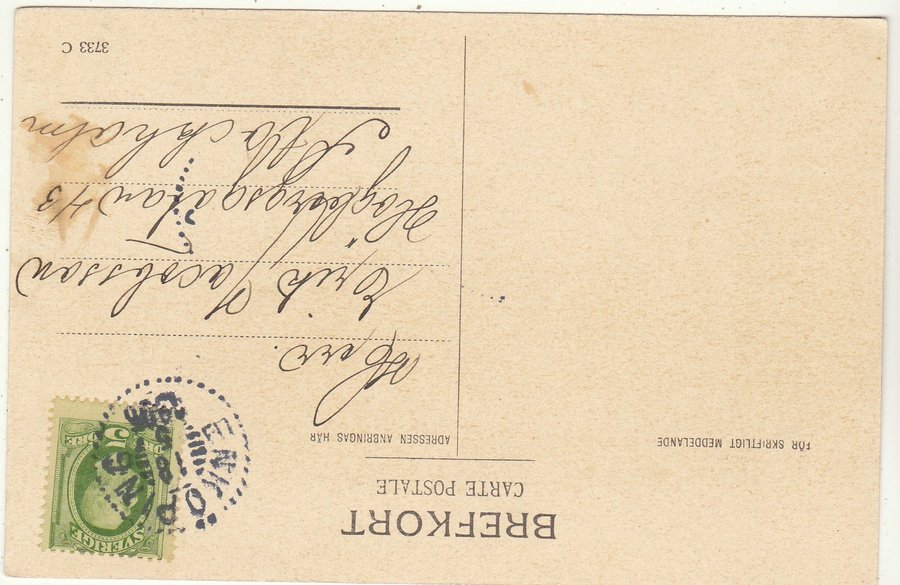 BREFKORT
CARTE POSTALE
FÖR SKRIFTLIGT MEDDELANDE
ADRESSEN ANBRINGAS HÄR
SVERIGE
5
ÖRE
ENKÖPING
18
Herr.
Erik Jacobsson
Högbergsgatan 43
Stockholm
3733 C